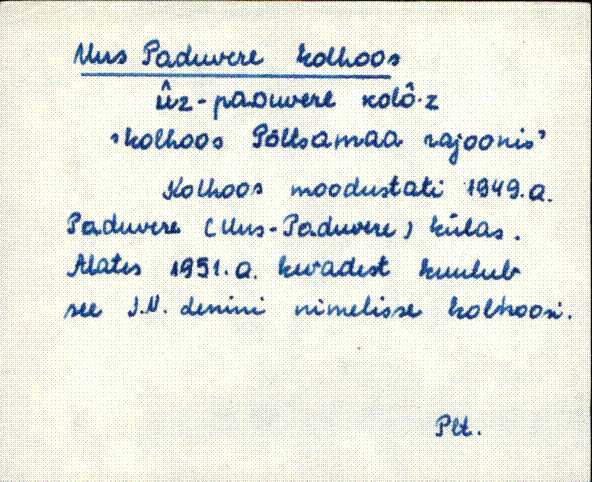 Uus Paduvere kolhoos
ûz-paduvere kolô·z
'kolhoos Põltsamaa rajoonis'
Kolhoos moodustati 1949.a.
Paduvere (Uus-Paduvere) külas.
Alates 1951.a. kevadest kuulub
see J.V. Lenini nimelisse kolhoosi.
Plt.